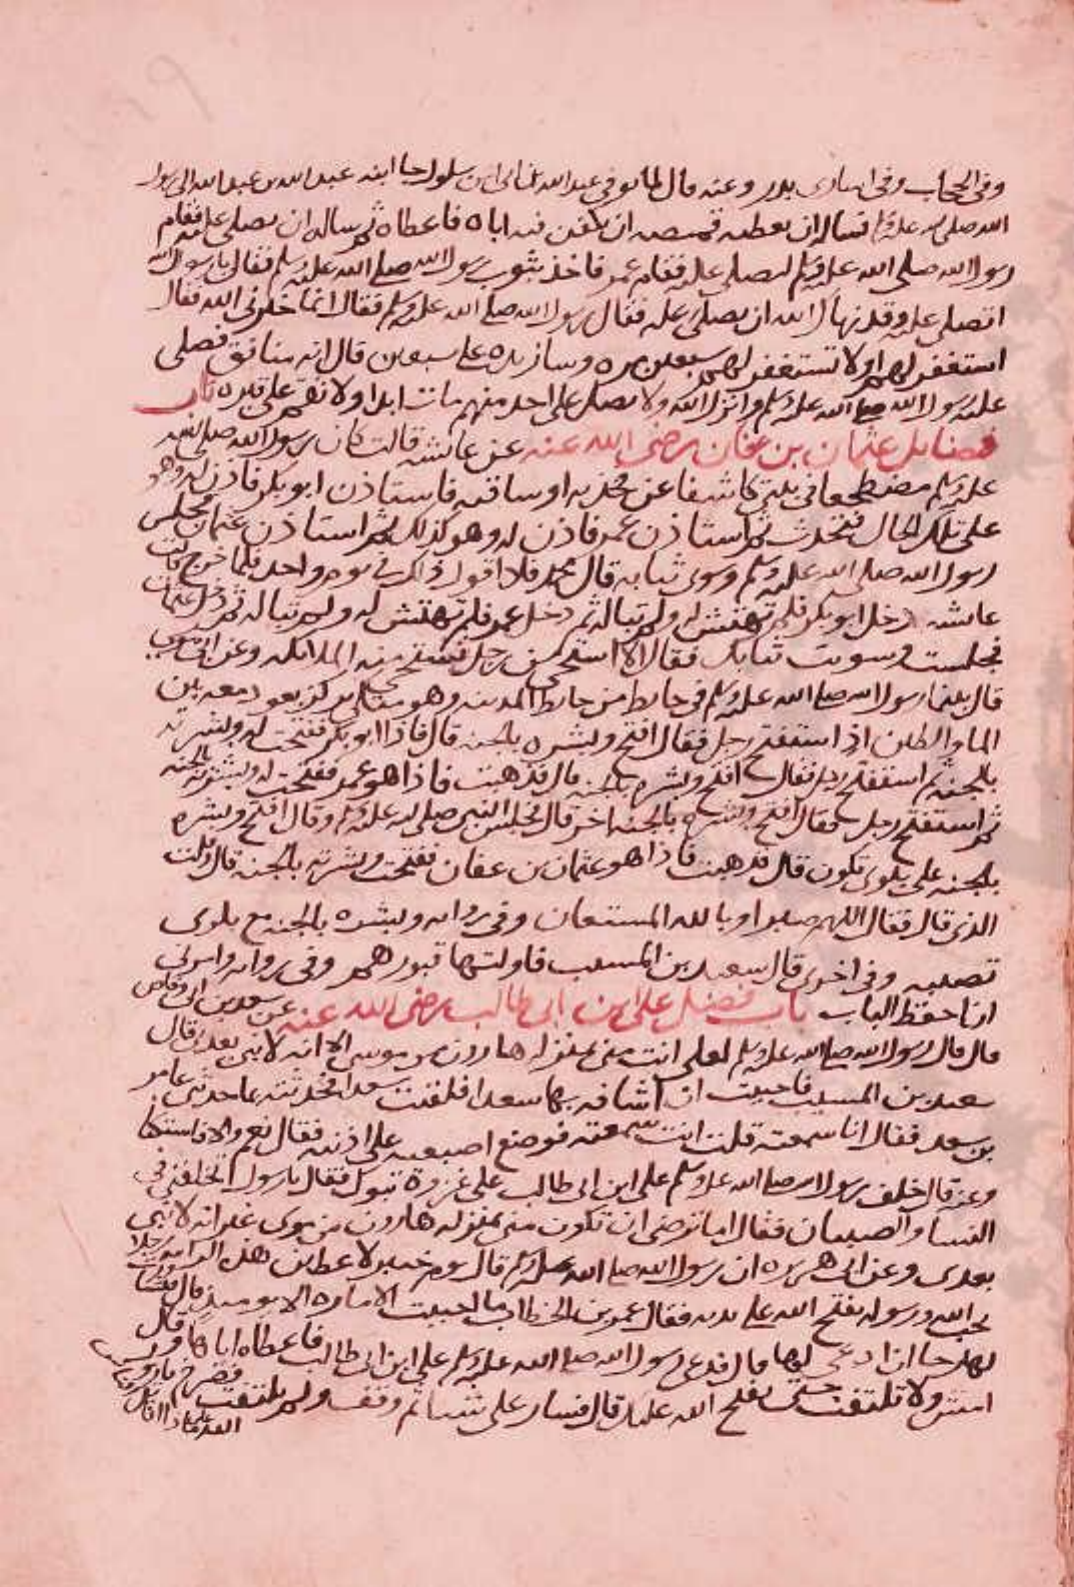 وفي الحجاب وفي اسارى بدر وعنه قال لما توفي عبد الله بن ابي ابن سلول جا ابنه عبد الله بن عبد الله الى رسول
الله صلى الله عليه وسلم فساله ان يعطيه قميصه ان يكفن فيه اباه فاعطاه ثم ساله ان يصلي عليه فقام
رسول الله صلى الله عليه وسلم ليصلي عليه فقام عمر فاخذ بثوب رسول الله صلى الله عليه وسلم فقال يا رسول الله
اتصلي عليه وقد نهاك الله ان تصلي عليه فقال رسول الله صلى الله عليه وسلم فقال انما خيرني الله فقال
استغفر لهم او لا تستغفر لهم سبعين مره وسازيده على سبعين قال انه منافق فصلى
عليه رسول الله صلى الله عليه وسلم وانزل الله ولا تصل على احد منهم مات ابدا ولا تقم على قبره باب
فضايل عثمان بن عفان رضي الله عنه عن عائشه قالت كان رسول الله صلى الله
عليه وسلم مضطجعا في بيتي كاشفا عن فخذيه او ساقيه فاستاذن ابو بكر فاذن له وهو
على تلك الحال فتحدث ثم استاذن عمر فاذن له وهو كذلك ثم استاذن عثمان فجلس
رسول الله صلى الله عليه وسلم وسوى ثيابه قال محمد فلا اقول ذلك في يوم واحد فلما خرج قالت
عائشه دخل ابو بكر فلم تهتش له ولم تباله ثم دخل عمر فلم تهتش له ولم تباله ثم دخل عثمان
فجلست وسويت ثيابك فقال الا استحي من رجل تستحي منه الملائكه وعن ابي موسى
قال بينما رسول الله صلى الله عليه وسلم في حايط من حايط المدينه وهو متكي يركز بعود معه بين
الما والطين اذ استفتح رجل فقال افتح وبشره بالجنه قال فاذا ابو بكر ففتحت له وبشرته
بالجنه ثم استفتح رجل فقال افتح وبشره بالجنه قال فذهبت فاذا هو عمر ففتحت له وبشرته بالجنه
ثم استفتح رجل فقال افتح وبشره بالجنه اخر قال فجلس النبي صلى الله عليه وسلم وقال افتح وبشره
بالجنه على بلوى تكون قال فذهبت فاذا هو عثمان بن عفان ففتحت وبشرته بالجنه قال وقلت
الذي قال فقال اللهم صبرا وبالله المستعان وفي روايه وبشره بالجنه مع بلوى
تصيبه وفي اخرى قال سعيد بن المسيب فاولتها قبورهم وفي روايه وامرني
ان احفظ الباب باب فضل علي ابن ابي طالب رضي الله عنه عن سعد بن ابي وقاص
قال قال رسول الله صلى الله عليه وسلم لعلي انت مني بمنزله هارون من موسى الا انه لا نبي بعدي قال
سعيد بن المسيب فاحببت ان اشافه بها سعدا فلقيت سعدا فحدثته بما حدثني عامر
بن سعد فقال انا سمعته قلت انت سمعته فوضع اصبعيه على اذنيه فقال نعم والا فاستكتا
وعنه قال خلف رسول الله صلى الله عليه وسلم علي ابن ابي طالب على غزوة تبوك فقال يا رسول الله تخلفني في
النسا والصبيان فقال اما ترضى ان تكون مني بمنزله هارون من موسى غير انه لا نبي
بعدي وعن ابي هريره ان رسول الله صلى الله عليه وسلم قال يوم خيبر لاعطين هذه الرايه رجلا
يحب الله ورسوله يفتح الله على يديه فقال عمر بن الخطاب ما احببت الاماره الا يوميذ قال
لها رجا ان ادعى لها قال فدعى رسول الله صلى الله عليه وسلم علي ابن ابي طالب فاعطاه اياها وقال
امش ولا تلتفت حتى يفتح الله عليك قال فسار علي شيا ثم وقف ولم يلتفت فصرخ يا رسول
الله على ماذا اقاتل